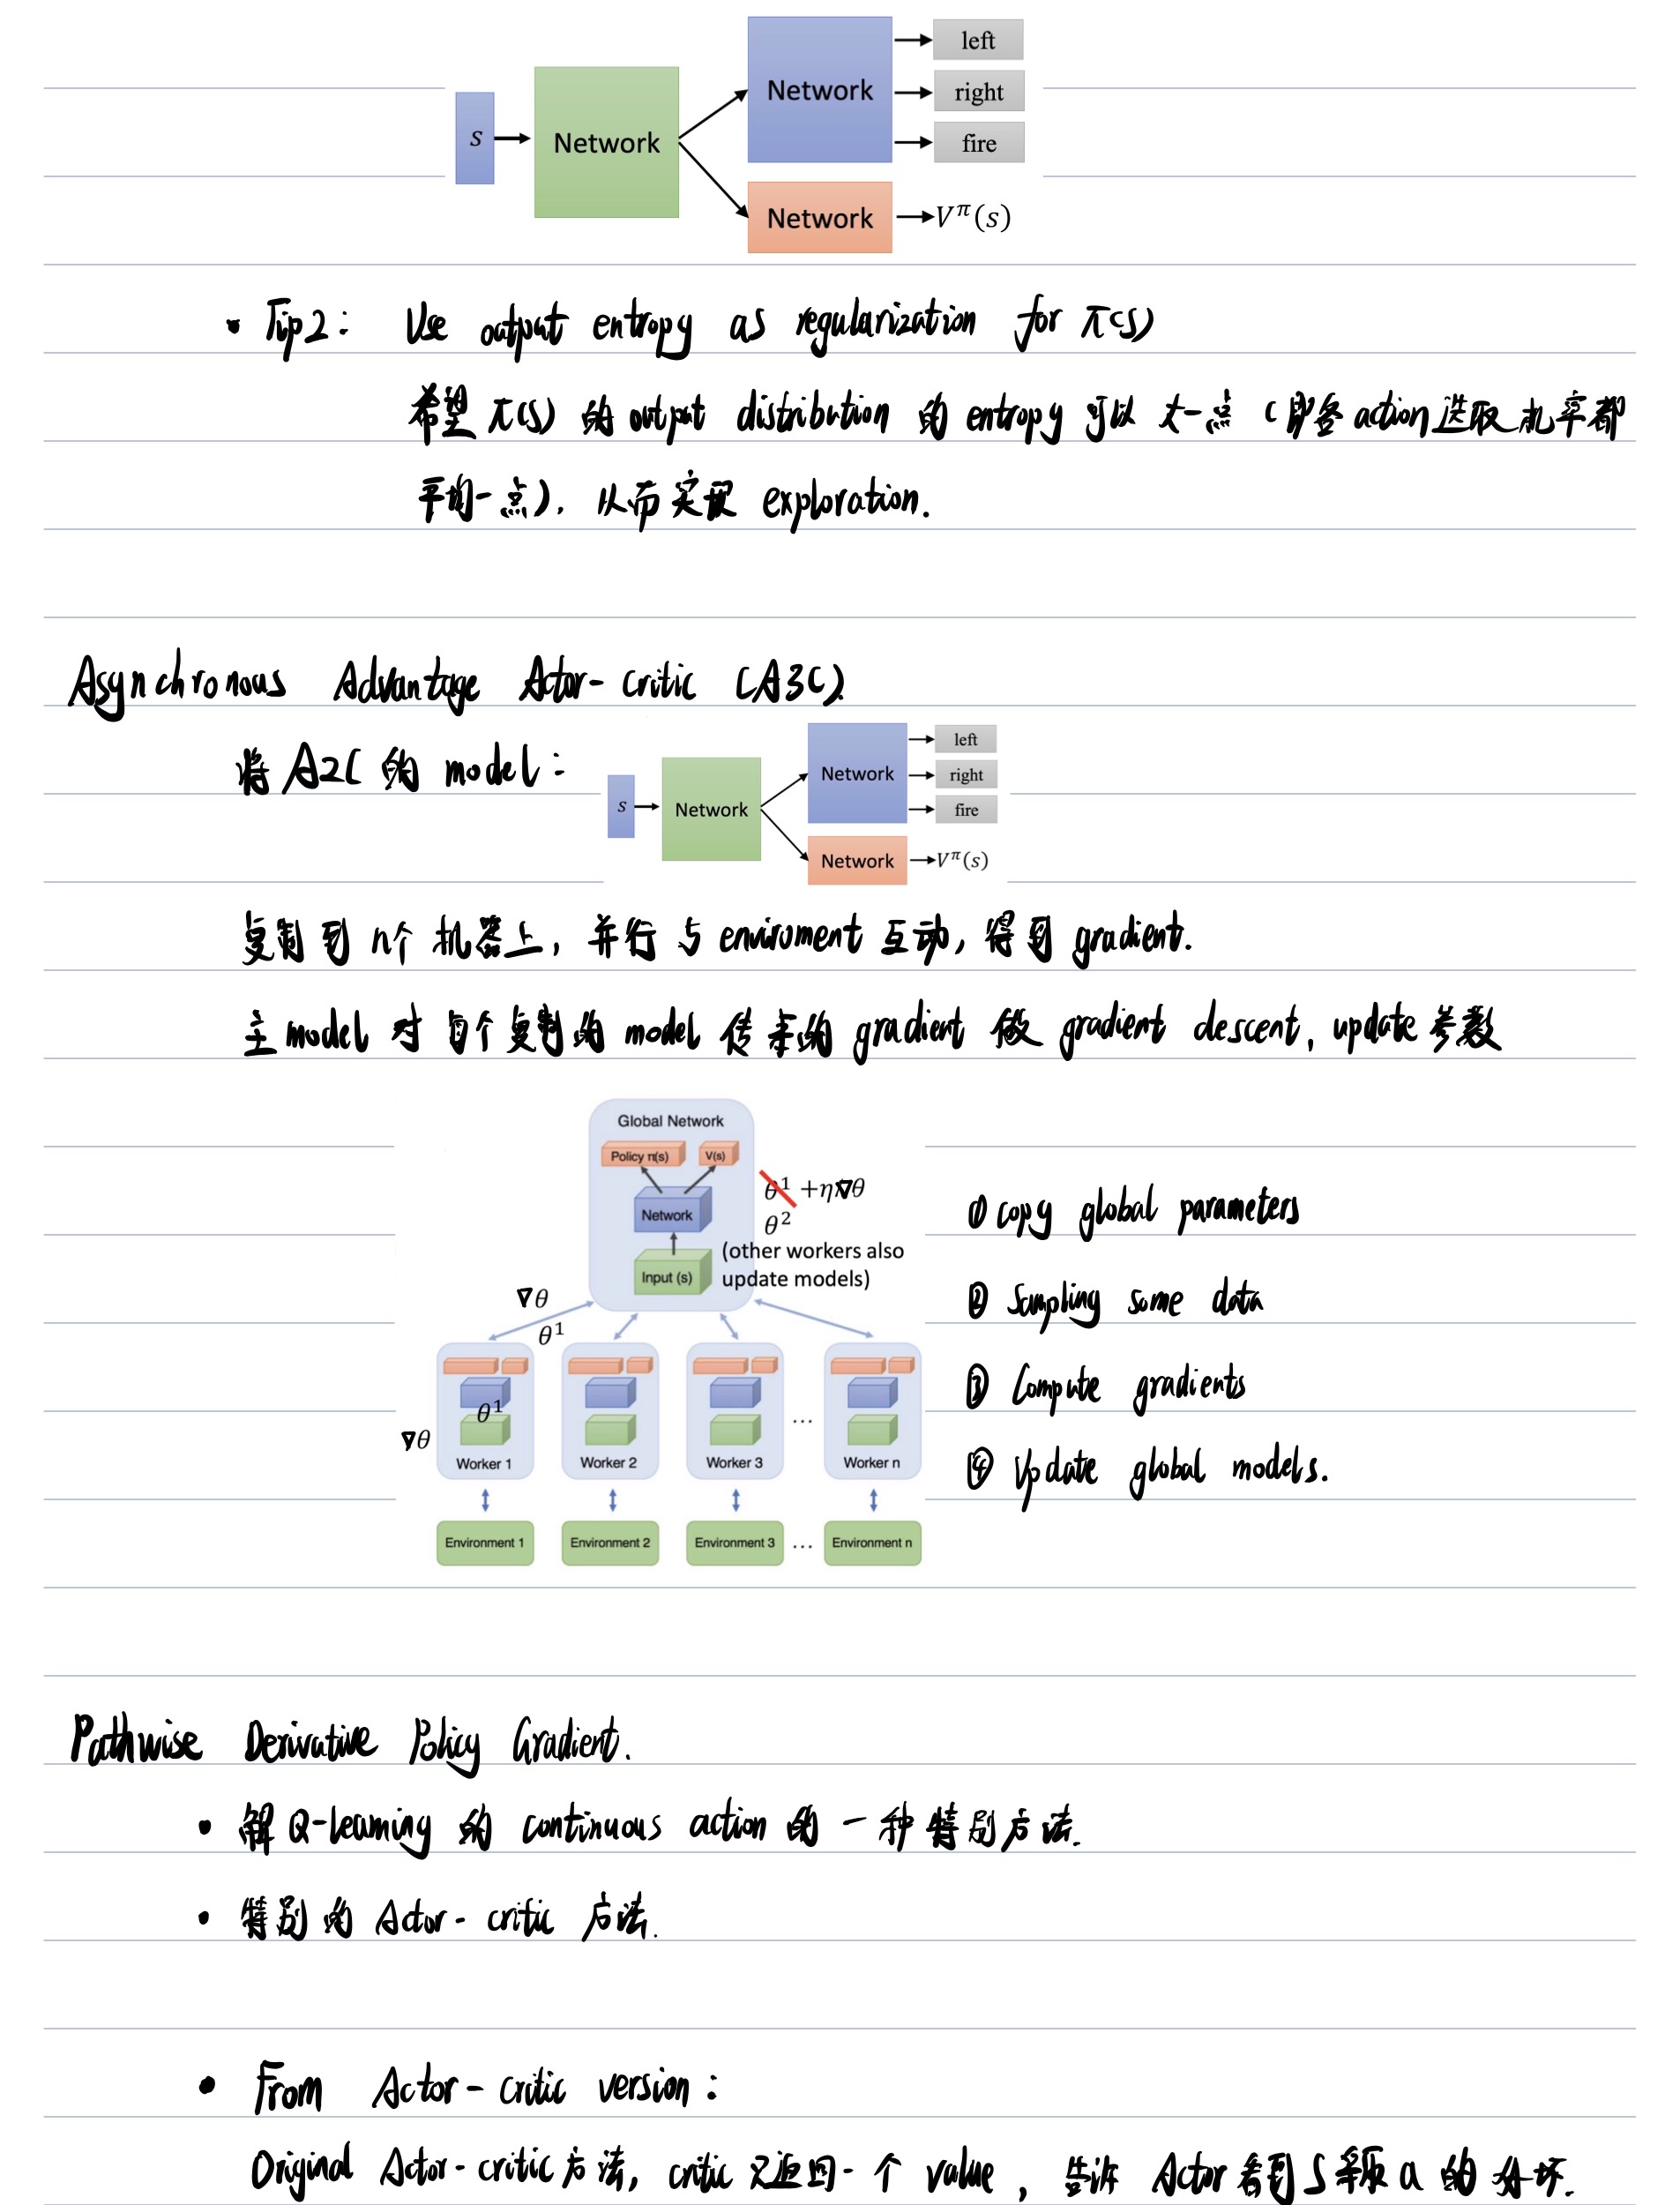 left
S → Network Network right
fire
Network V^π(s)
• Tip2: Use output entropy as regularization for π(s)
希望 π(s) 的 output distribution 的 entropy 可以 大一点 (即各 action 选取机率都
平均一点), 从而实现 exploration.
Asynchronous Advantage Actor-critic (A3C)
将 A2C 的 model:
left
S Network Network right
fire
Network V^π(s)
复制到 n个 机器上, 并行 与 enviroment 互动, 得到 gradient.
主 model 对 每个复制的 model 传来的 gradient 做 gradient descent, update 参数
Global Network
Policy π(s) V(s)
Network
Input (s)
θ¹ +η∇θ
θ²
(other workers also
update models)
∇θ
θ¹
θ¹
∇θ
Worker 1 Worker 2 Worker 3 ... Worker n
Environment 1 Environment 2 Environment 3 ... Environment n
① copy global parameters
② Sampling some data
③ Compute gradients
④ Update global models.
Pathwise Derivative Policy Gradient.
• 解 Q-learning 的 continuous action 的 一种 特别方法.
• 特别的 Actor-critic 方法.
• From Actor-critic version:
Original Actor-critic 方法, critic 只返回一个 value, 告诉 Actor 看到 S 采取 a 的 好坏.